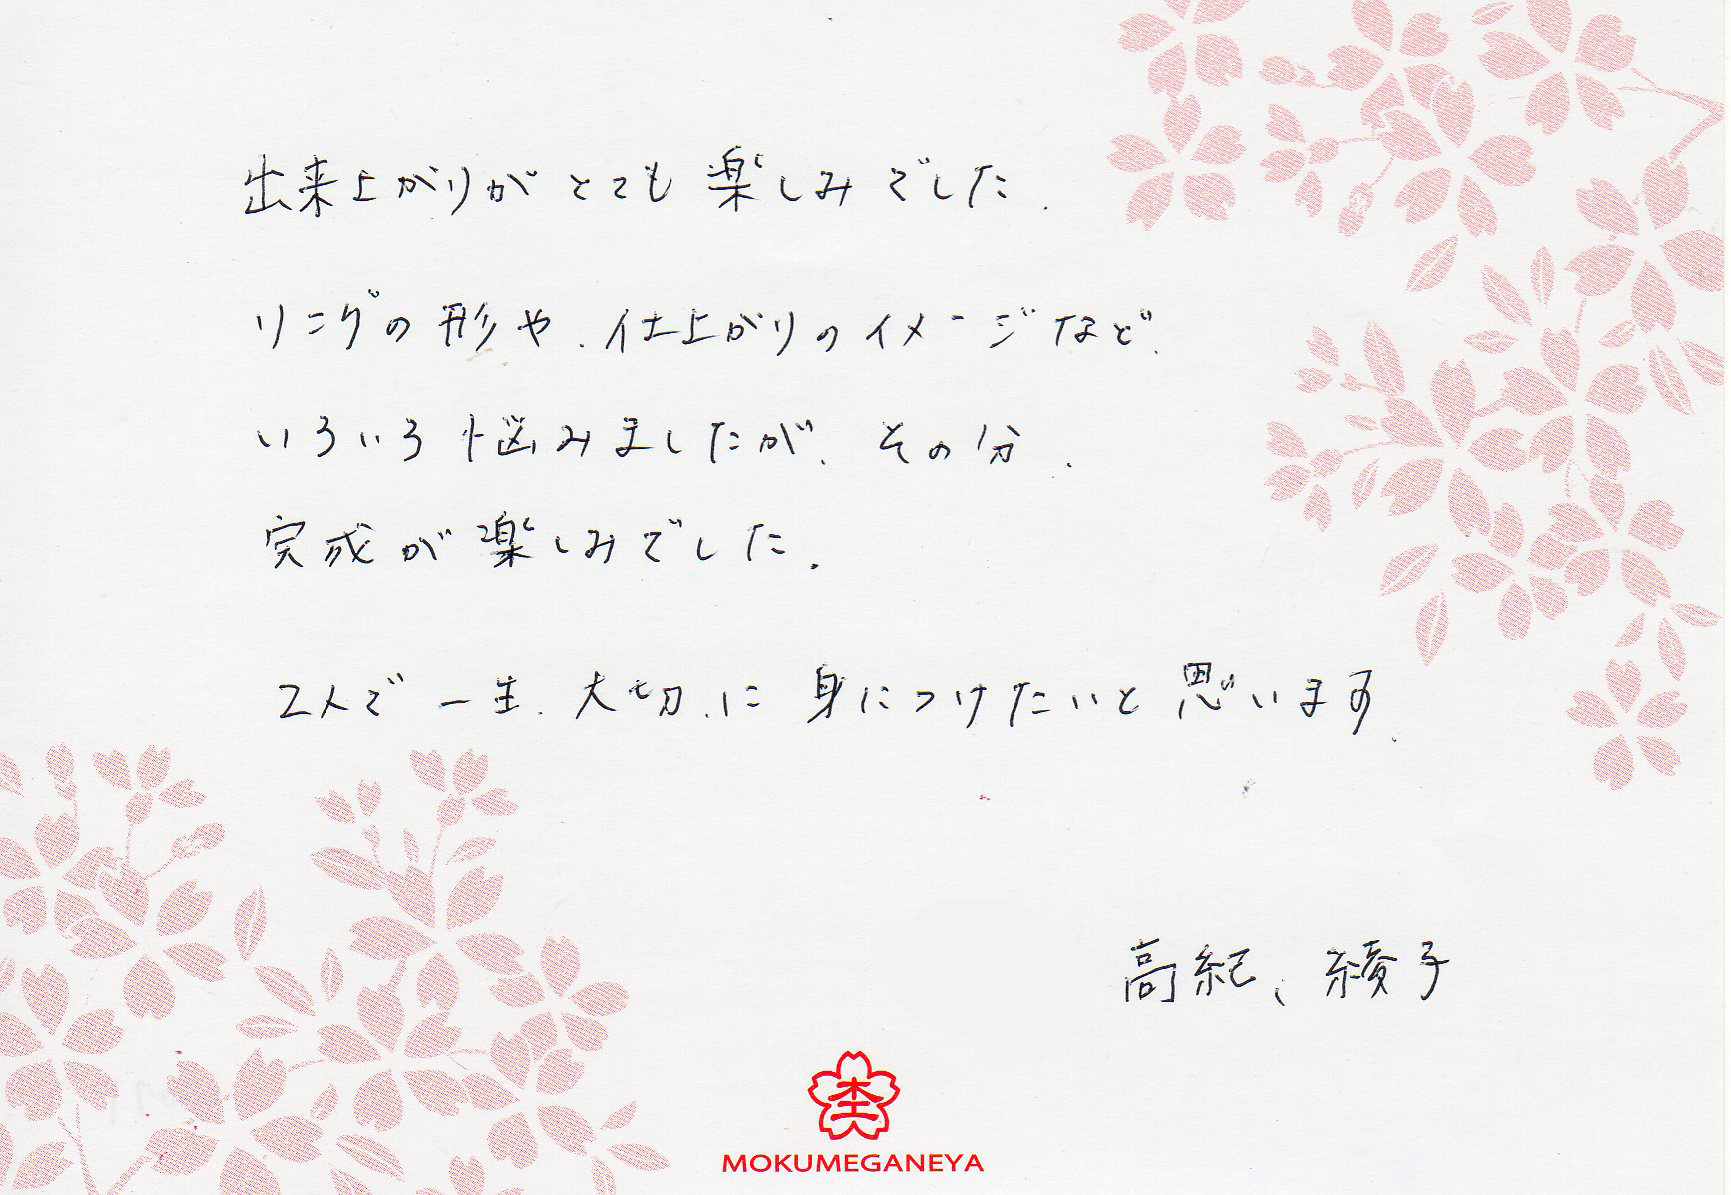 出来上がりがとても楽しみでした.
リングの形や、仕上がりのイメージなど、
いろいろ悩みましたが、その分、
完成が楽しみでした.
2人で一生、大切に身につけたいと思います.
高紀、綾子
MOKUMEGANEYA